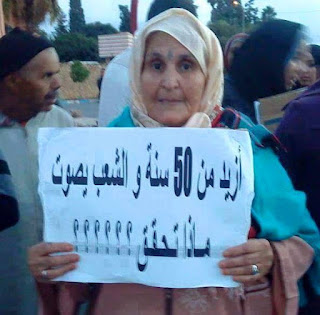 أزيد من 50 سنة و الشعب يصوت
ماذا تحقق ؟؟؟؟؟؟